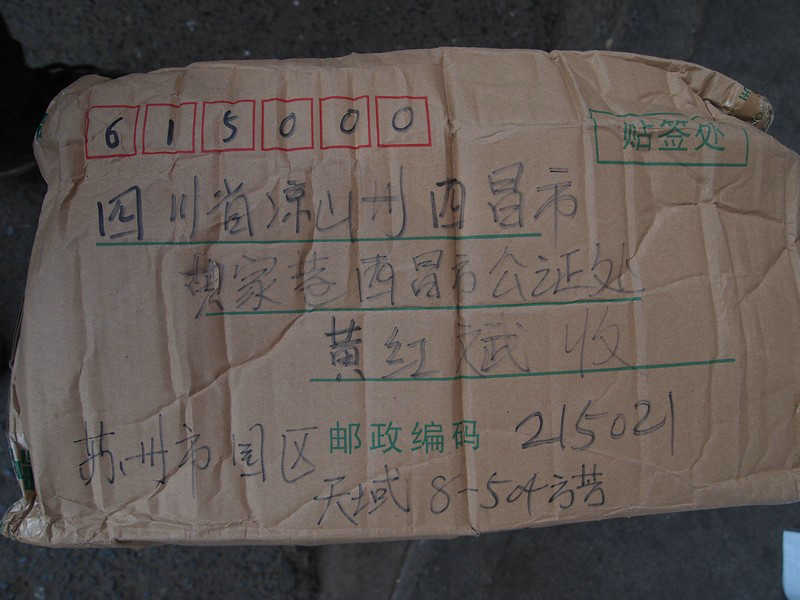 615000
贴签处
四川省凉山州西昌市
胡家巷西昌市公证处
黄红斌 收
苏州市园区 邮政编码 215021
天域 8-504 方芸